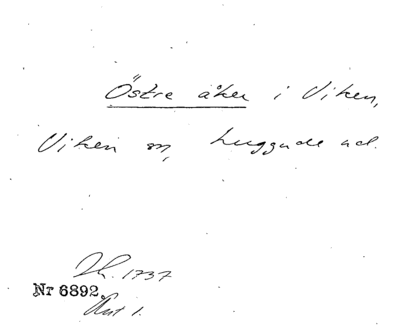 Östre åker i Viken,
Viken sn, Luggude hd.
Lh. 1737
Nr 6892.
Akt 1.